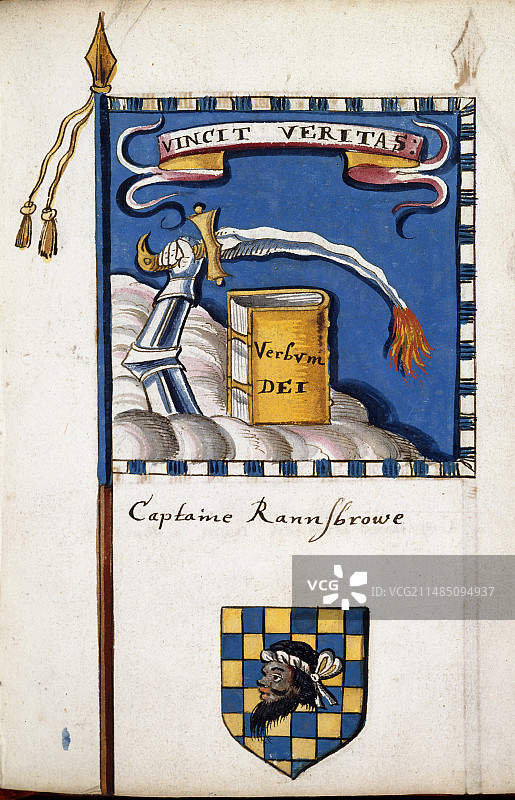 VINCIT VERITAS:
Verbvm
DEI
Captaine Rannsbrowe
VCG
VCG.COM
ID:VCG211485094937